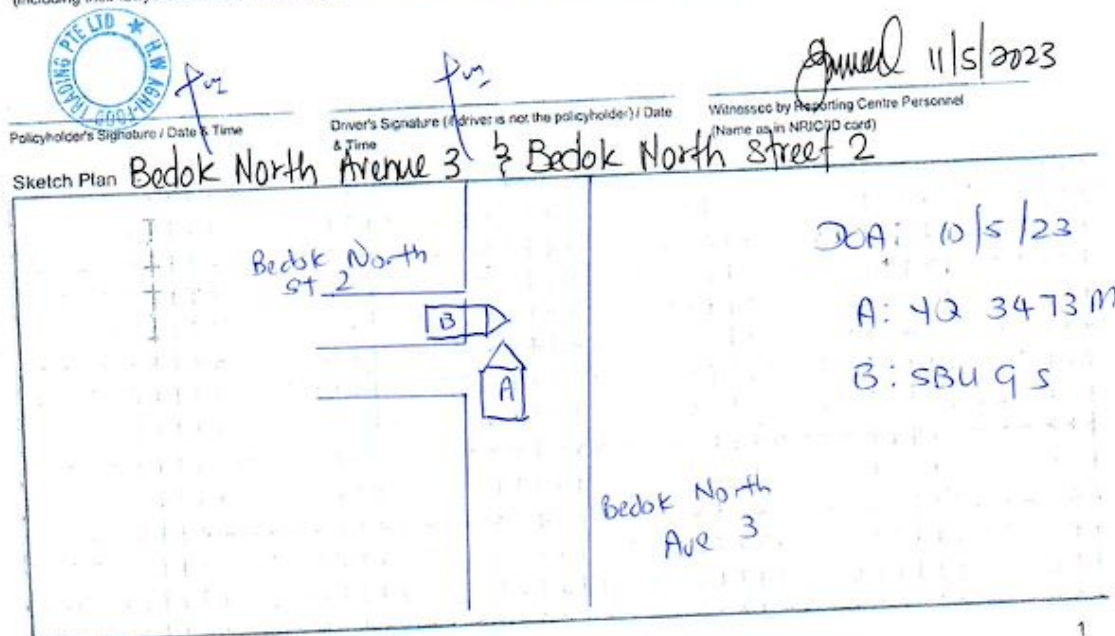 PTE LTD * H.W AGRI-FOOD TRADING
11/5/2023
Policyholder's Signature / Date & Time
Driver's Signature (if driver is not the policyholder) / Date
& Time
Witnessed by Reporting Centre Personnel
(Name as in NRIC/ID card)
Sketch Plan Bedok North Avenue 3 & Bedok North Street 2
Bedok North
St 2
B
A
DOA: 10/5/23
A: YQ 3473M
B: SBU 9 S
Bedok North
Ave 3
1